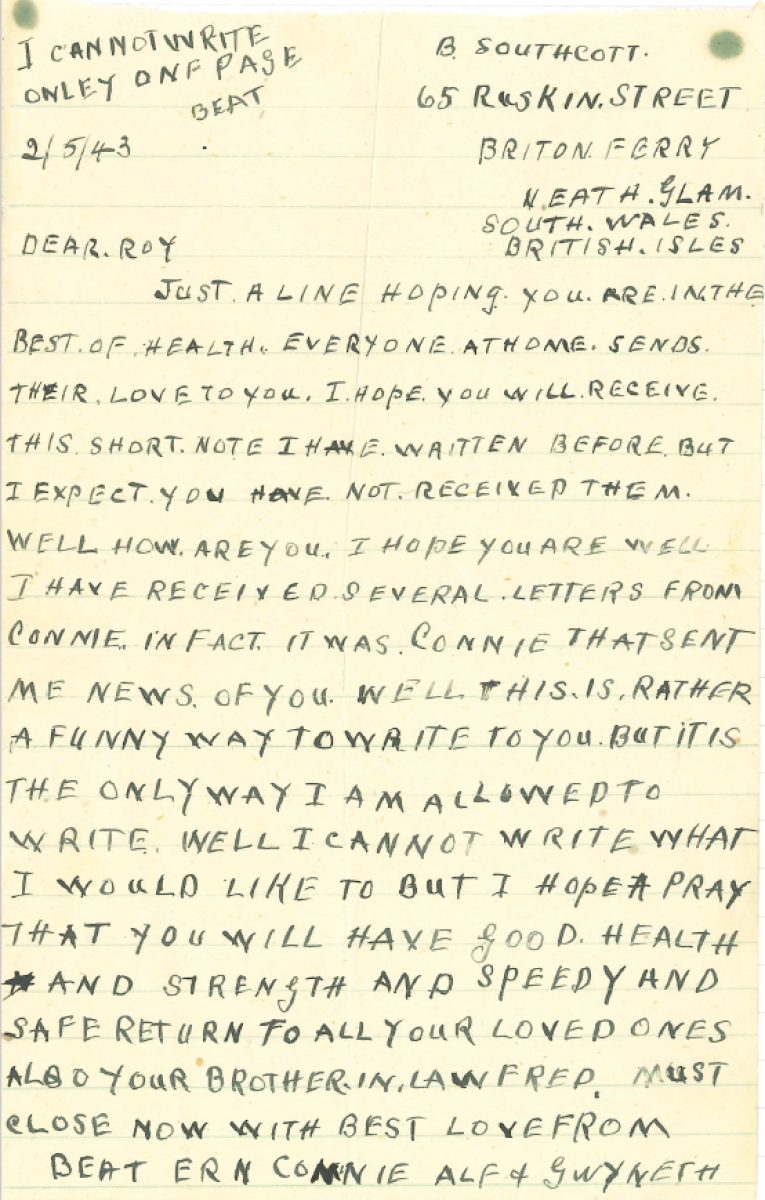 I CANNOT WRITE
ONLEY ONE PAGE
BEAT
B. SOUTHCOTT.
65 RUSKIN. STREET
2/5/43
BRITON. FERRY
NEATH. GLAM.
SOUTH. WALES.
BRITISH. ISLES
DEAR. ROY
JUST. A LINE HOPING. YOU. ARE. IN. THE
BEST. OF. HEALTH. EVERYONE. AT HOME. SENDS.
THEIR. LOVE TO YOU. I. HOPE. YOU WILL. RECEIVE.
THIS. SHORT. NOTE I HAVE. WRITTEN BEFORE. BUT
I EXPECT. YOU HAVE. NOT. RECEIVED THEM.
WELL HOW. ARE YOU. I HOPE YOU ARE WELL
I HAVE RECEIVED. SEVERAL. LETTERS FROM
CONNIE. IN FACT. IT WAS. CONNIE THAT SENT
ME NEWS. OF YOU. WELL THIS. IS. RATHER
A FUNNY WAY TO WRITE TO YOU. BUT IT IS
THE ONLY WAY I AM ALLOWED TO
WRITE. WELL I CANNOT WRITE WHAT
I WOULD LIKE TO BUT I HOPE & PRAY
THAT YOU WILL HAVE GOOD. HEALTH
AND STRENGTH AND SPEEDY AND
SAFE RETURN TO ALL YOUR LOVED ONES
ALSO YOUR BROTHER. IN. LAW FRED. MUST
CLOSE NOW WITH BEST LOVE FROM
BEAT ERN CONNIE ALF & GWYNETH